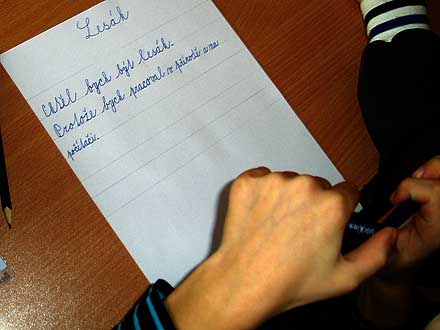 Lesák
Chtěl bych být lesák.
Protože bych pracoval v přírodě a na
počítači.